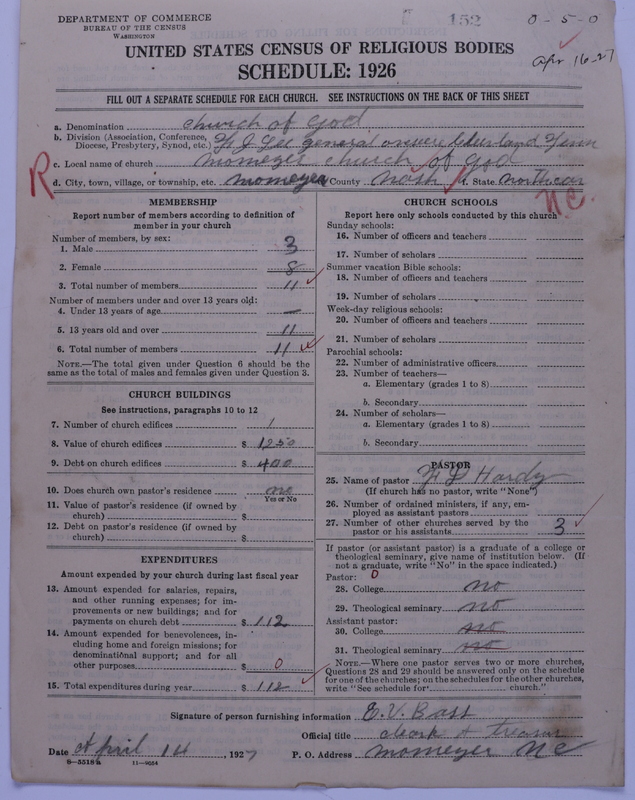 DEPARTMENT OF COMMERCE
BUREAU OF THE CENSUS
WASHINGTON
152
0-5-0
Apr 16-27
UNITED STATES CENSUS OF RELIGIOUS BODIES
SCHEDULE: 1926
FILL OUT A SEPARATE SCHEDULE FOR EACH CHURCH. SEE INSTRUCTIONS ON THE BACK OF THIS SHEET
a. Denomination church of god
b. Division (Association, Conference, Diocese, Presbytery, Synod, etc.) general Tenn
c. Local name of church momeyer church of god
d. City, town, village, or township, etc. momeyer County nash f. State north car
R
N.C.
MEMBERSHIP
Report number of members according to definition of member in your church
Number of members, by sex:
1. Male 3
2. Female 8
3. Total number of members 11
Number of members under and over 13 years old:
4. Under 13 years of age —
5. 13 years old and over 11
6. Total number of members 11
NOTE.—The total given under Question 6 should be the same as the total of males and females given under Question 3.
CHURCH BUILDINGS
See instructions, paragraphs 10 to 12
7. Number of church edifices 1
8. Value of church edifices $ 1250
9. Debt on church edifices $ 400
10. Does church own pastor's residence no
Yes or No
11. Value of pastor's residence (if owned by church) $
12. Debt on pastor's residence (if owned by church) $
EXPENDITURES
Amount expended by your church during last fiscal year
13. Amount expended for salaries, repairs, and other running expenses; for improvements or new buildings; and for payments on church debt $ 112
14. Amount expended for benevolences, including home and foreign missions; for denominational support; and for all other purposes $ 0
15. Total expenditures during year $ 112
CHURCH SCHOOLS
Report here only schools conducted by this church
Sunday schools:
16. Number of officers and teachers
17. Number of scholars
Summer vacation Bible schools:
18. Number of officers and teachers
19. Number of scholars
Week-day religious schools:
20. Number of officers and teachers
21. Number of scholars
Parochial schools:
22. Number of administrative officers
23. Number of teachers—
a. Elementary (grades 1 to 8)
b. Secondary
24. Number of scholars—
a. Elementary (grades 1 to 8)
b. Secondary
PASTOR
25. Name of pastor Hardy
(If church has no pastor, write "None")
26. Number of ordained ministers, if any, employed as assistant pastors
27. Number of other churches served by the pastor or his assistants 3
If pastor (or assistant pastor) is a graduate of a college or theological seminary, give name of institution below. (If not a graduate, write "No" in the space indicated.)
Pastor: 0
28. College no
29. Theological seminary no
Assistant pastor:
30. College no
31. Theological seminary no
NOTE.—Where one pastor serves two or more churches, Questions 28 and 29 should be answered only on the schedule for one of the churches; on the schedules for the other churches, write "See schedule for church."
Signature of person furnishing information E. V. Bass
Official title clerk & treasur
Date April 14, 1927 P. O. Address momeyer NC
8-5518a 11-9054